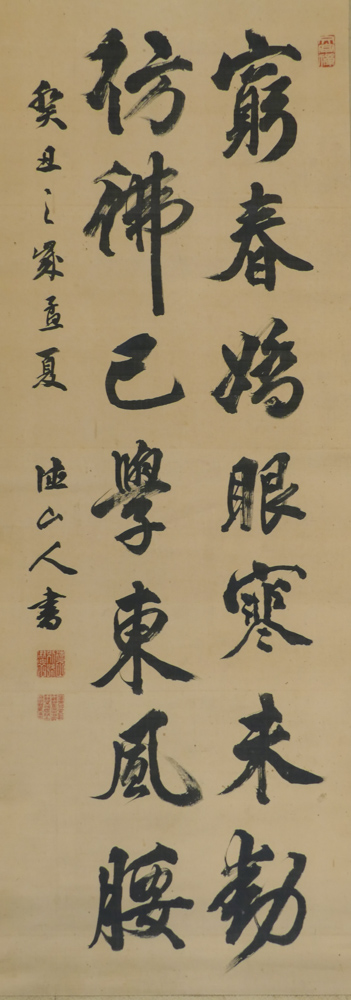 窮春嬌眼寒未動
彷彿已學東風腰
癸丑之歲孟夏 山人書